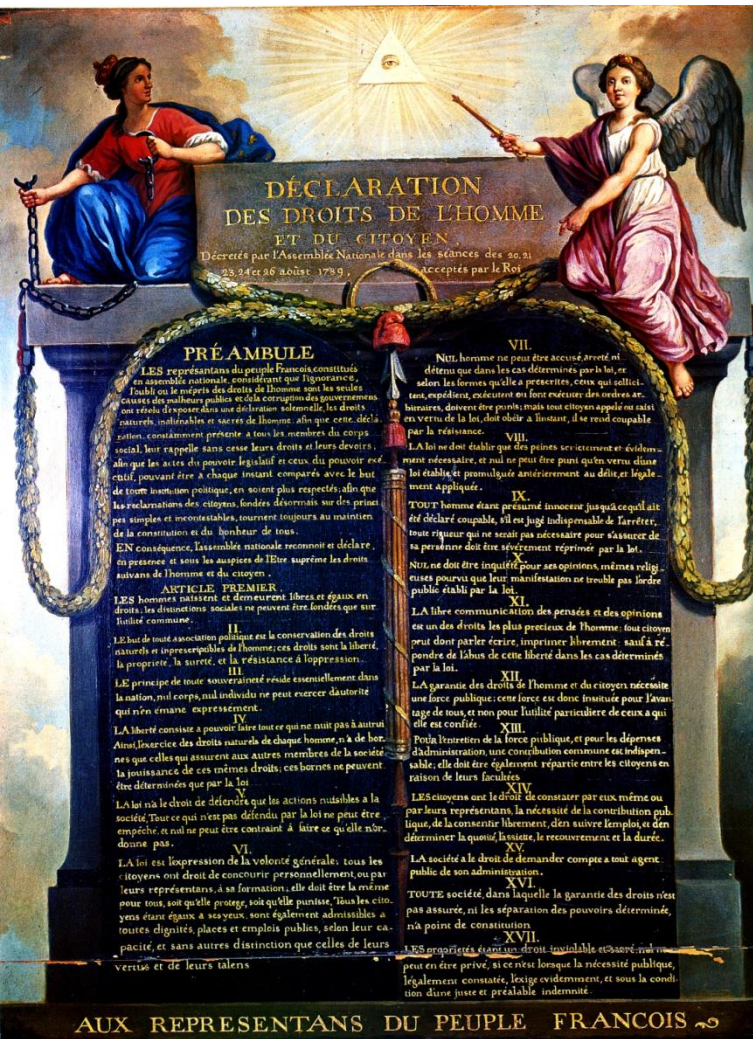 DÉCLARATION
DES DROITS DE L'HOMME
ET DU CITOYEN,
Décretés par l'Assemblée Nationale dans les séances des 20, 21
23, 24 et 26 août 1789, acceptés par le Roi
PRÉAMBULE
LES représantans du peuple Francois, constitués
en assemblée nationale, considérant que l'ignorance,
l'oubli ou le mépris des droits de l'homme sont les seules
causes des malheurs publics et de la corruption des gouvernemens
ont résolu d'exposer, dans une déclaration solemnelle, les droits
naturels, inaliénables et sacrés de l'homme; afin que cette décla
ration, constamment présente a tous les membres du corps
social, leur rappelle sans cesse leurs droits et leurs devoirs;
afin que les actes du pouvoir legislatif et ceux du pouvoir exé
cutif, pouvant être à chaque instant comparés avec le but
de toute institution politique, en soient plus respectés; afin que
les reclamations des citoyens, fondées désormais sur des princi
pes simples et incontestables, tournent toujours au maintien
de la constitution et du bonheur de tous.
EN conséquence, l'assemblée nationale reconnoit et déclare,
en presence et sous les auspices de l'Etre suprême les droits
suivans de l'homme et du citoyen.
ARTICLE PREMIER.
LES hommes naissent et demeurent libres et égaux en
droits; les distinctions sociales ne peuvent être fondées que sur
l'utilité commune.
II.
LE but de toute association politique est la conservation des droits
naturels et inprescriptibles de l'homme; ces droits sont la liberté,
la propriété, la sureté, et la résistance à l'oppression.
III.
LE principe de toute souveraineté réside essentiellement dans
la nation, nul corps, nul individu ne peut exercer d'autorité
qui n'en émane expressément.
IV.
LA liberté consiste a pouvoir faire tout ce qui ne nuit pas à autrui
Ainsi, l'exercice des droits naturels de chaque homme, n'a de bor
nes que celles qui assurent aux autres membres de la société
la jouissance de ces mêmes droits; ces bornes ne peuvent
être déterminées que par la loi
V.
LA loi n'a le droit de défendre que les actions nuisibles a la
société, Tout ce qui n'est pas défendu par la loi ne peut être
empêché, et nul ne peut être contraint à faire ce qu'elle n'or-
donne pas.
VI.
LA loi est l'expression de la volonté générale; tous les
citoyens ont droit de concourir personnellement, ou par
leurs représentans, à sa formation; elle doit être la même
pour tous, soit qu'elle protege, soit qu'elle punisse. Tous les cito-
yens étant égaux a ses yeux, sont également admissibles a
toutes dignités, places et emplois publics, selon leur ca-
pacité, et sans autres distinction que celles de leurs
vertus et de leurs talens
VII.
NUL homme ne peut être accusé, arreté, ni
détenu que dans les cas déterminés par la loi, et
selon les formes qu'elle a prescrites, ceux qui sollici-
tent, expédient, exécutent ou font exécuter des ordres ar-
bitraires, doivent être punis; mais tout citoyen appelé ou saisi
en vertu de la loi, doit obéir a l'instant, il se rend coupable
par la résistance.
VIII.
LA loi ne doit établir que des peines strictement et évidem-
ment nécessaire, et nul ne peut être puni qu'en vertu d'une
loi établie, et promulguée antérierement au délit, et légale-
ment appliquée.
IX.
TOUT homme étant présumé innocent jusqu'a ce qu'il ait
été déclaré coupable, s'il est jugé indispensable de l'arrêter,
toute rigueur qui ne serait pas nécessaire pour s'assurer de
sa personne doit être sévèrement réprimée par la loi.
X.
NUL ne doit être inquiété pour ses opinions, mêmes religi-
euses pourvu que leur manifestation ne trouble pas l'ordre
public établi par la loi.
XI.
LA libre communication des pensées et des opinions
est un des droits les plus precieux de l'homme; tout citoyen
peut dont parler écrire, imprimer librement: sauf à ré-
pondre de l'abus de cette liberté dans les cas déterminés
par la loi.
XII.
LA garantie des droits de l'homme et du citoyen nécessite
une force publique; cette force est donc instituée pour l'avan-
tage de tous, et non pour l'utilité particuliere de ceux a qui
elle est confiée.
XIII.
Pour l'entretien de la force publique, et pour les dépenses
d'administration, une contribution commune est indispen-
sable; elle doit être également répartie entre les citoyens en
raison de leurs facultées
XIV.
LES citoyens ont le droit de constater par eux même ou
par leurs représentans, la nécessité de la contribution pub-
lique, de la consentir librement, d'en suivre l'emploi, et d'en
déterminer la quotité, l'assiette, le recouvrement et la durée.
XV.
LA société a le droit de demander compte a tout agent
public de son administration.
XVI.
TOUTE société, dans laquelle la garantie des droits n'est
pas assurée, ni les séparation des pouvoirs déterminée,
n'a point de constitution
XVII.
LES propriétés étant un droit inviolable et sacré, nul ne
peut en être privé, si ce n'est lorsque la nécessité publique,
légalement constatée, l'exige evidemment, et sous la condi-
tion d'une juste et préalable indemnité.
AUX REPRESENTANS DU PEUPLE FRANCOIS